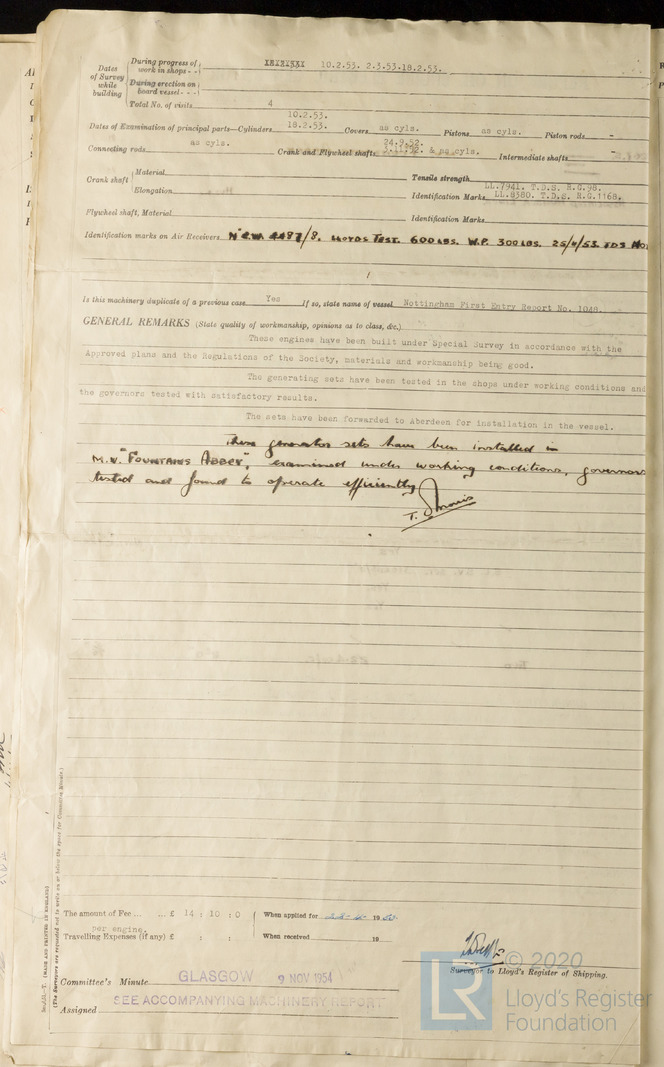 Dates of Survey while building
During progress of work in shops - - XXXXXXXX 10.2.53. 2-3.53.18.2.53.
During erection on board vessel - - -
Total No. of visits 4
10.2.53.
Dates of Examination of principal parts—Cylinders 18.2.53. Covers as cyls. Pistons as cyls. Piston rods -
24.9.52.
Connecting rods as cyls. Crank and Flywheel shafts 3.11.52. & as cyls. Intermediate shafts -
Crank shaft
Material Tensile strength
LL.7941. T.D.S. R.G.98.
Elongation Identification Marks LL.8380. T.D.S. R.G.1168.
Flywheel shaft, Material Identification Marks
Identification marks on Air Receivers 4487/8. LLOYDS TEST. 600 LBS. W.P. 300 LBS. TDS
Is this machinery duplicate of a previous case Yes If so, state name of vessel Nottingham First Entry Report No. 1048.
GENERAL REMARKS (State quality of workmanship, opinions as to class, &c.)
These engines have been built under Special Survey in accordance with the
Approved plans and the Regulations of the Society, materials and workmanship being good.
The generating sets have been tested in the shops under working conditions and
the governors tested with satisfactory results.
The sets have been forwarded to Aberdeen for installation in the vessel.
These generator sets have been installed in
M.V. "FOUNTAINS ABBEY", examined under working conditions, governors
tested and found to operate efficiently
The amount of Fee ... ... £ 14 : 10 : 0 When applied for 19
per engine.
Travelling Expenses (if any) £ : : When received 19
Surveyor to Lloyd's Register of Shipping.
Committee's Minute GLASGOW 9 NOV 1954
SEE ACCOMPANYING MACHINERY REPORT
Assigned
(MADE AND PRINTED IN ENGLAND)
(The Surveyors are requested not to write on or below the space for Committee Minute.)
LR © 2020
Lloyd's Register
Foundation